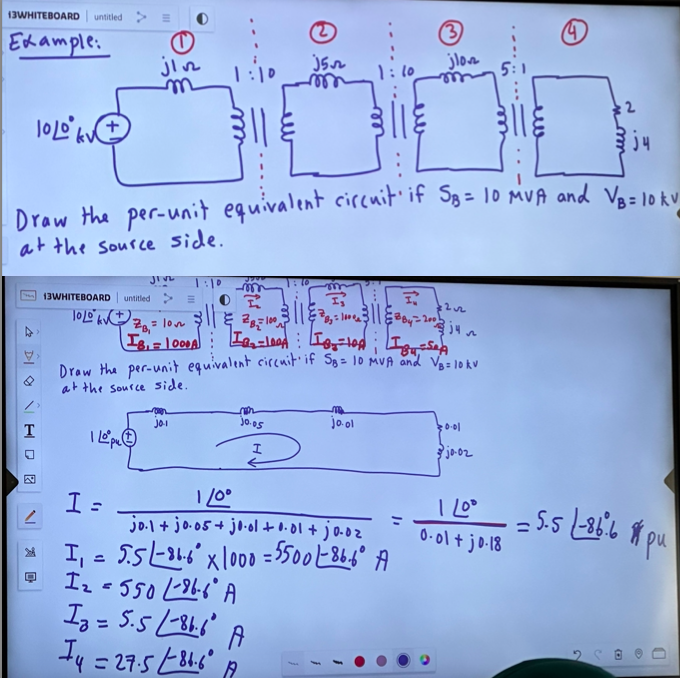 i3WHITEBOARD untitled
Example:
① ② ③ ④
j1Ω 1:10 j5Ω 1:10 j10Ω 5:1
10∠0° kV + 2
j4
Draw the per-unit equivalent circuit if S_B = 10 MVA and V_B = 10 kV
at the source side.
i3WHITEBOARD untitled
j1Ω 1:10 1:10
10∠0° kV + I₂ I₃ I₄ 2Ω
Z_B1 = 10Ω Z_B2 = 100Ω Z_B3 = 1000Ω Z_B4 = 200 j4 Ω
I_B1 = 1000A I_B2 = 100A I_B3 = 10A I_B4 = 50A
Draw the per-unit equivalent circuit if S_B = 10 MVA and V_B = 10 kV
at the source side.
j0.1 j0.05 j0.01
1∠0° pu + I 0.01
j0.02
I = 1∠0° / (j0.1 + j0.05 + j0.01 + 0.01 + j0.02) = 1∠0° / (0.01 + j0.18) = 5.5∠-86.6° pu
I₁ = 5.5∠-86.6° × 1000 = 5500∠-86.6° A
I₂ = 550∠-86.6° A
I₃ = 5.5∠-86.6° A
I₄ = 27.5∠-86.6° A